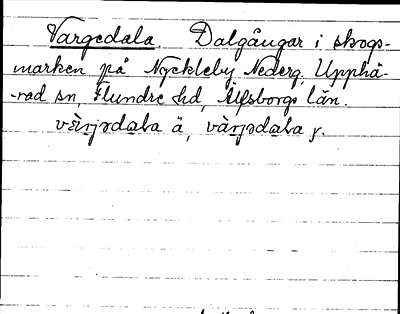 Vargedala. Dalgångar i skogs-
marken på Nyckleby Nederg. Upphä-
-rad sn, Flundre hd, Älfsborgs län.
vàrjədala ä, vàrjədala y.